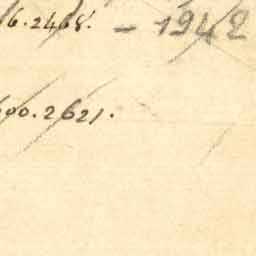 6.2468. - 1942
600.2621.